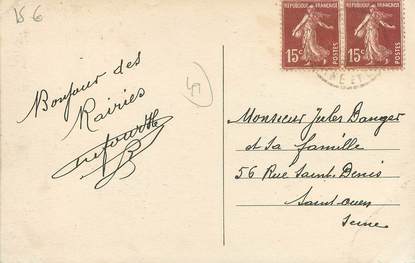 156
REPUBLIQUE FRANCAISE REPUBLIQUE FRANCAISE
15c POSTES 15c POSTES
Bonjour des
Rairies
Monsieur Jules Danger
et Sa famille
56 Rue Saint-Denis
Saint-Ouen
Seine